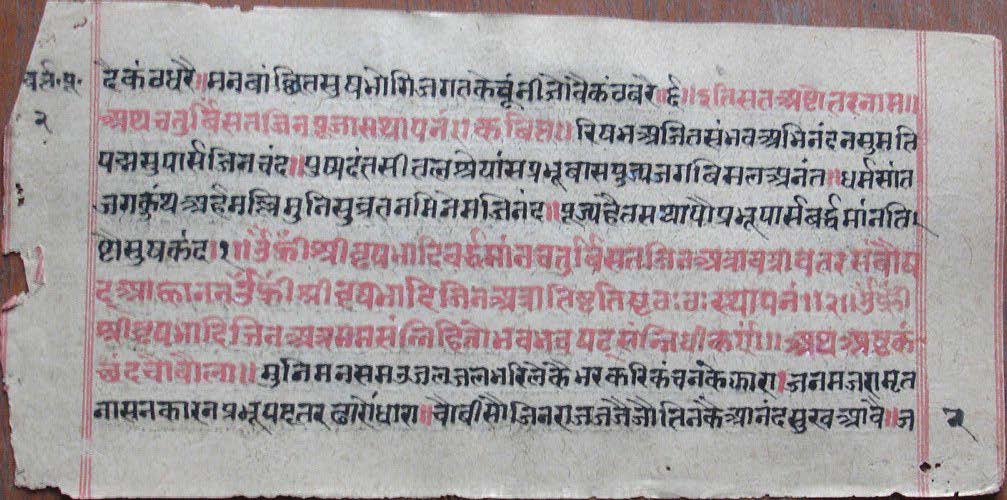 चर्त.पू. दैकंठधरै॥मनवांछितसुषभोगिजगतकेर्चूनीजेवैकंठबरै॥ई॥इतिसतअष्टोतरनाम॥
२ अथचतुर्विसतजिनपूजासथापनंएकबित्त॥रिषभअजितसंभवअभिनंदनसुमति
पद्मसुपार्सजिनचंद॥पुष्पदंतसीतलश्रेयांसप्रभूबासपुज्यजगबिमलअनंत॥धर्मसांत
जगकुंथअहैमल्लिमुनिसुव्रतनमिनेमजिनंद॥पूज्यहैतसथापौप्रभूपार्सबर्द्धमांनति
ष्टौसुषकंद१॥ॐह्रीश्रीवृषभादिवर्द्धमांनचतुर्विसतजिनअत्रावत्रावतरसंवौष
ट्आह्वाननंॐह्रीश्रीवृषभादिजिनअत्रातिष्टतिष्टठःठःस्थापनं॥२॥ॐह्री
श्रीवृषभादिजिनअत्रममसंनिहितोभवभववषट्संनिधीकर्णं॥अथअष्टकं
छंदचौबोला॥मुनिमनसमउजलजलभरिलेकैभरकरिकंचनकेझारा।जनमजरामृत
नासनकारनप्रभूपदतरढारोंधारा॥चौवीसौंजिनराजजजैजौतिनकैआनंदसुखआवै॥ज २